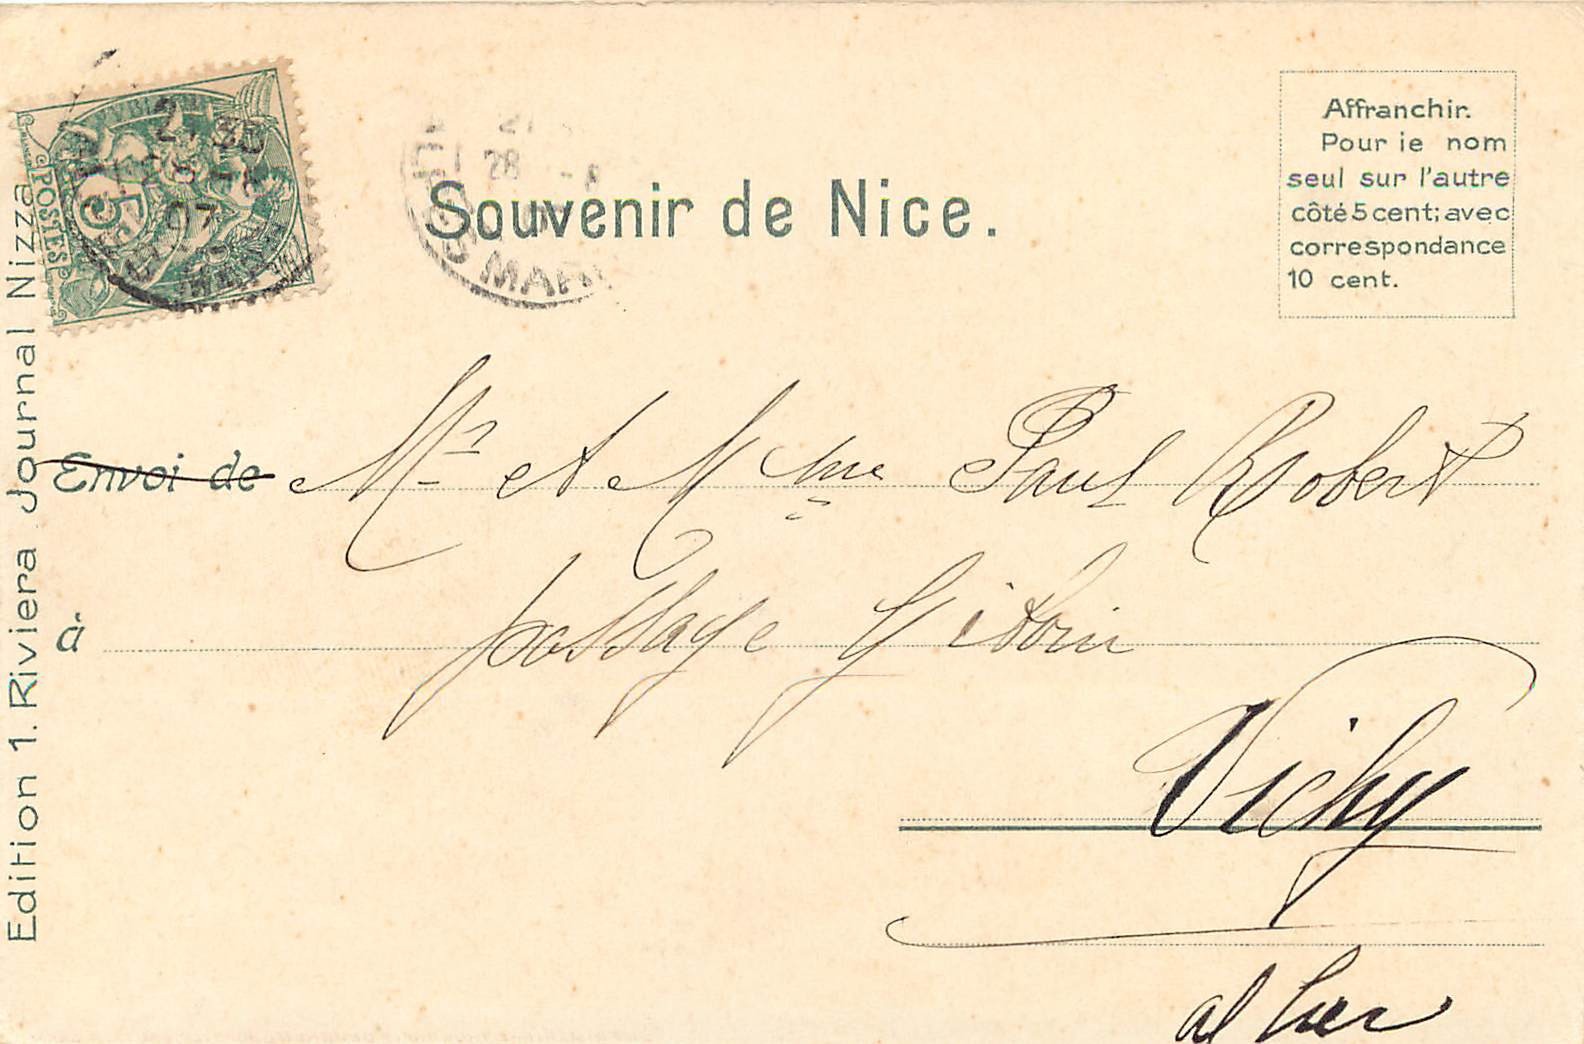 POSTES
5
07
28
MAR
Souvenir de Nice.
Affranchir.
Pour ie nom
seul sur l'autre
côté 5 cent; avec
correspondance
10 cent.
Edition 1. Riviera Journal Nizza
Envoi de Mr et Mme Paul Robert
à passage Giboin
Vichy
allier